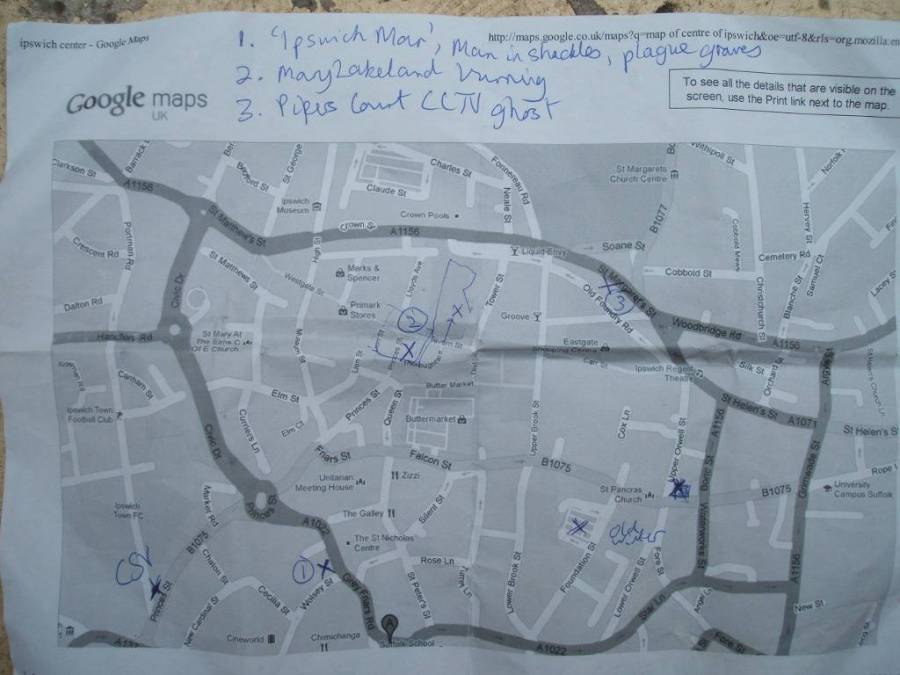 ipswich center - Google Maps
http://maps.google.co.uk/maps?q=map of centre of ipswich&oe=utf-8&rls=org.mozilla:en
1. 'Ipswich Man', Man in shackles, plague graves
2. May Lakeland burning
3. Pipers Court CCTV ghost
Google maps
UK
To see all the details that are visible on the
screen, use the Print link next to the map.
Clarkson St
Barrack
A1156
St George
Charles St
Claude St
Fonnereau Rd
Neale St
St Margarets
Church Centre
B1077
Norfolk
Ipswich
Museum
Crown Pools
Crown St
A1156
St Matthew's St
High St
Portman Rd
Crescent Rd
Civic Dr
St Matthews St
Westgate St
Marks &
Spencer
Lloyds Ave
Tower St
Liquid Envy
Soane St
Cobbold Mews
Hervey St
Cemetery Rd
Cobbold St
Christchurch St
Blanche St
Samuel Ct
Lacey S
St Margaret's St
3
Old Foundry Rd
Dalton Rd
Primark
Stores
2
Groove
Woodbridge Rd
A1156
Handford Rd
St Mary At
The Elms C
Of E Church
Museum St
Lion St
Eastgate
Shopping Centre
Carr St
Ipswich Regent
Theatre
Silk St
Orchard
Canham St
Elm St
Princes St
Queen St
Butter Market
Buttermarket
St Helen's St
A1071
St Helen's S
Ipswich Town
Football Club
Curriers Ln
Elm Ct
Upper Brook St
Cox Ln
Upper Orwell St
A1156
Bond St
Grimwade St
Friars St
Falcon St
B1075
Civic Dr
Unitarian
Meeting House
Zizzi
St Pancras
Church
B1075
University
Campus Suffolk
Rope
Ipswich
Town FC
Market Rd
B1075
A1022
The Galley
Silent St
The St Nicholas
Centre
Foundation St
Waterworks St
Fore St
Princes St
Chalon St
Cecilia St
1
Wolsey St
Grey Friars Rd
Rose Ln
St Peter's St
Turret Ln
Lower Brook St
Lower Orwell St
Star Ln
Angel Ln
A1156
New St
New Cardinal St
Cineworld
Chimichanga
Suffolk School
A1022
Fore St